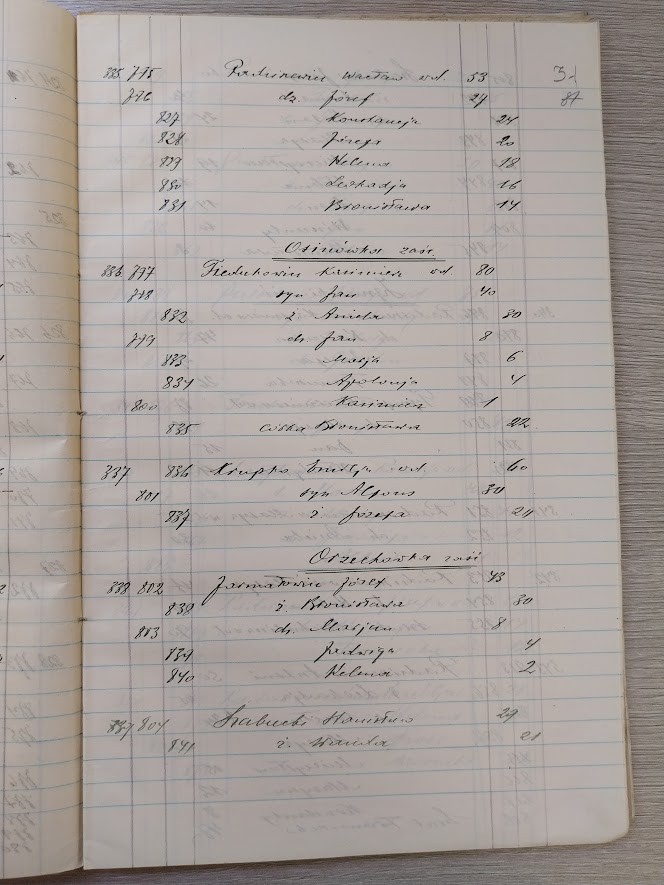 335 775 Radziewicz Wacław wd. 53 31
776 dz. Józef 27 87
827 Konstancja 24
828 Józefa 20
829 Helena 18
830 Leokadja 16
831 Bronisława 14
Osinówka zaśc
336 797 Fiedukowicz Kazimierz wd 80
798 syn Jan 40
832 ż Aniela 30
799 dz. Jan 8
833 Marja 6
834 Apolonja 4
800 Kazimierz 1
835 córka Bronisława 22
337 836 Krupko Emilja wd. 60
801 syn Alfons 30
837 ż Józefa 24
Orzechówka zaśc
338 802 Jarmałowicz Józef 43
838 ż Bronisława 30
803 dz. Marjan 8
839 Jadwiga 4
840 Helena 2
339 804 Stanisław 29
841 ż. Wanda 21